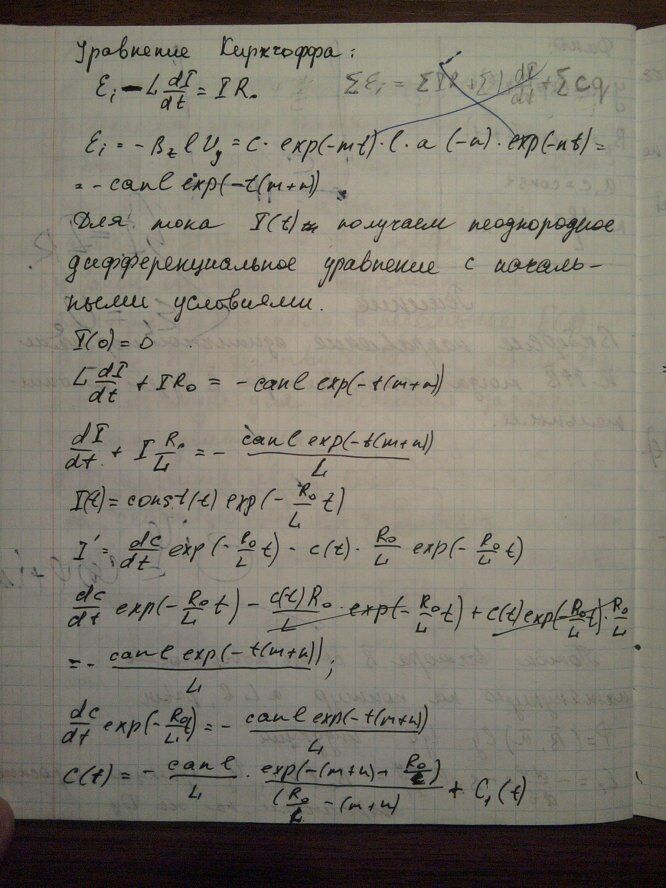 Уравнение Кирхгоффа:
Ɛi - L dI/dt = I R₀ ΣƐi = ΣIR + ΣL dI/dt + ΣCq
Ɛi = -Bz l Vy = c · exp(-mt) · l · a (-n) · exp(-nt) =
= -canl exp(-t(m+n))
Для тока I(t) получаем неоднородное
дифференциальное уравнение с началь-
ными условиями.
I(0) = 0
L dI/dt + IR₀ = -canl exp(-t(m+n))
dI/dt + I R₀/L = - canl exp(-t(m+n))/L
I(t) = const(t) exp(- R₀/L t)
I' = dc/dt exp(- R₀/L t) - c(t) · R₀/L exp(- R₀/L t)
dc/dt exp(- R₀/L t) - c(t)R₀/L · exp(- R₀/L t) + c(t) exp(- R₀/L t) · R₀/L
= - canl exp(-t(m+n))/L ;
dc/dt exp(- R₀t/L) = - canl exp(-t(m+n))/L
C(t) = - canl/L · exp(-(m+n)+ R₀/L)/(R₀/L - (m+n) + C₁(t)